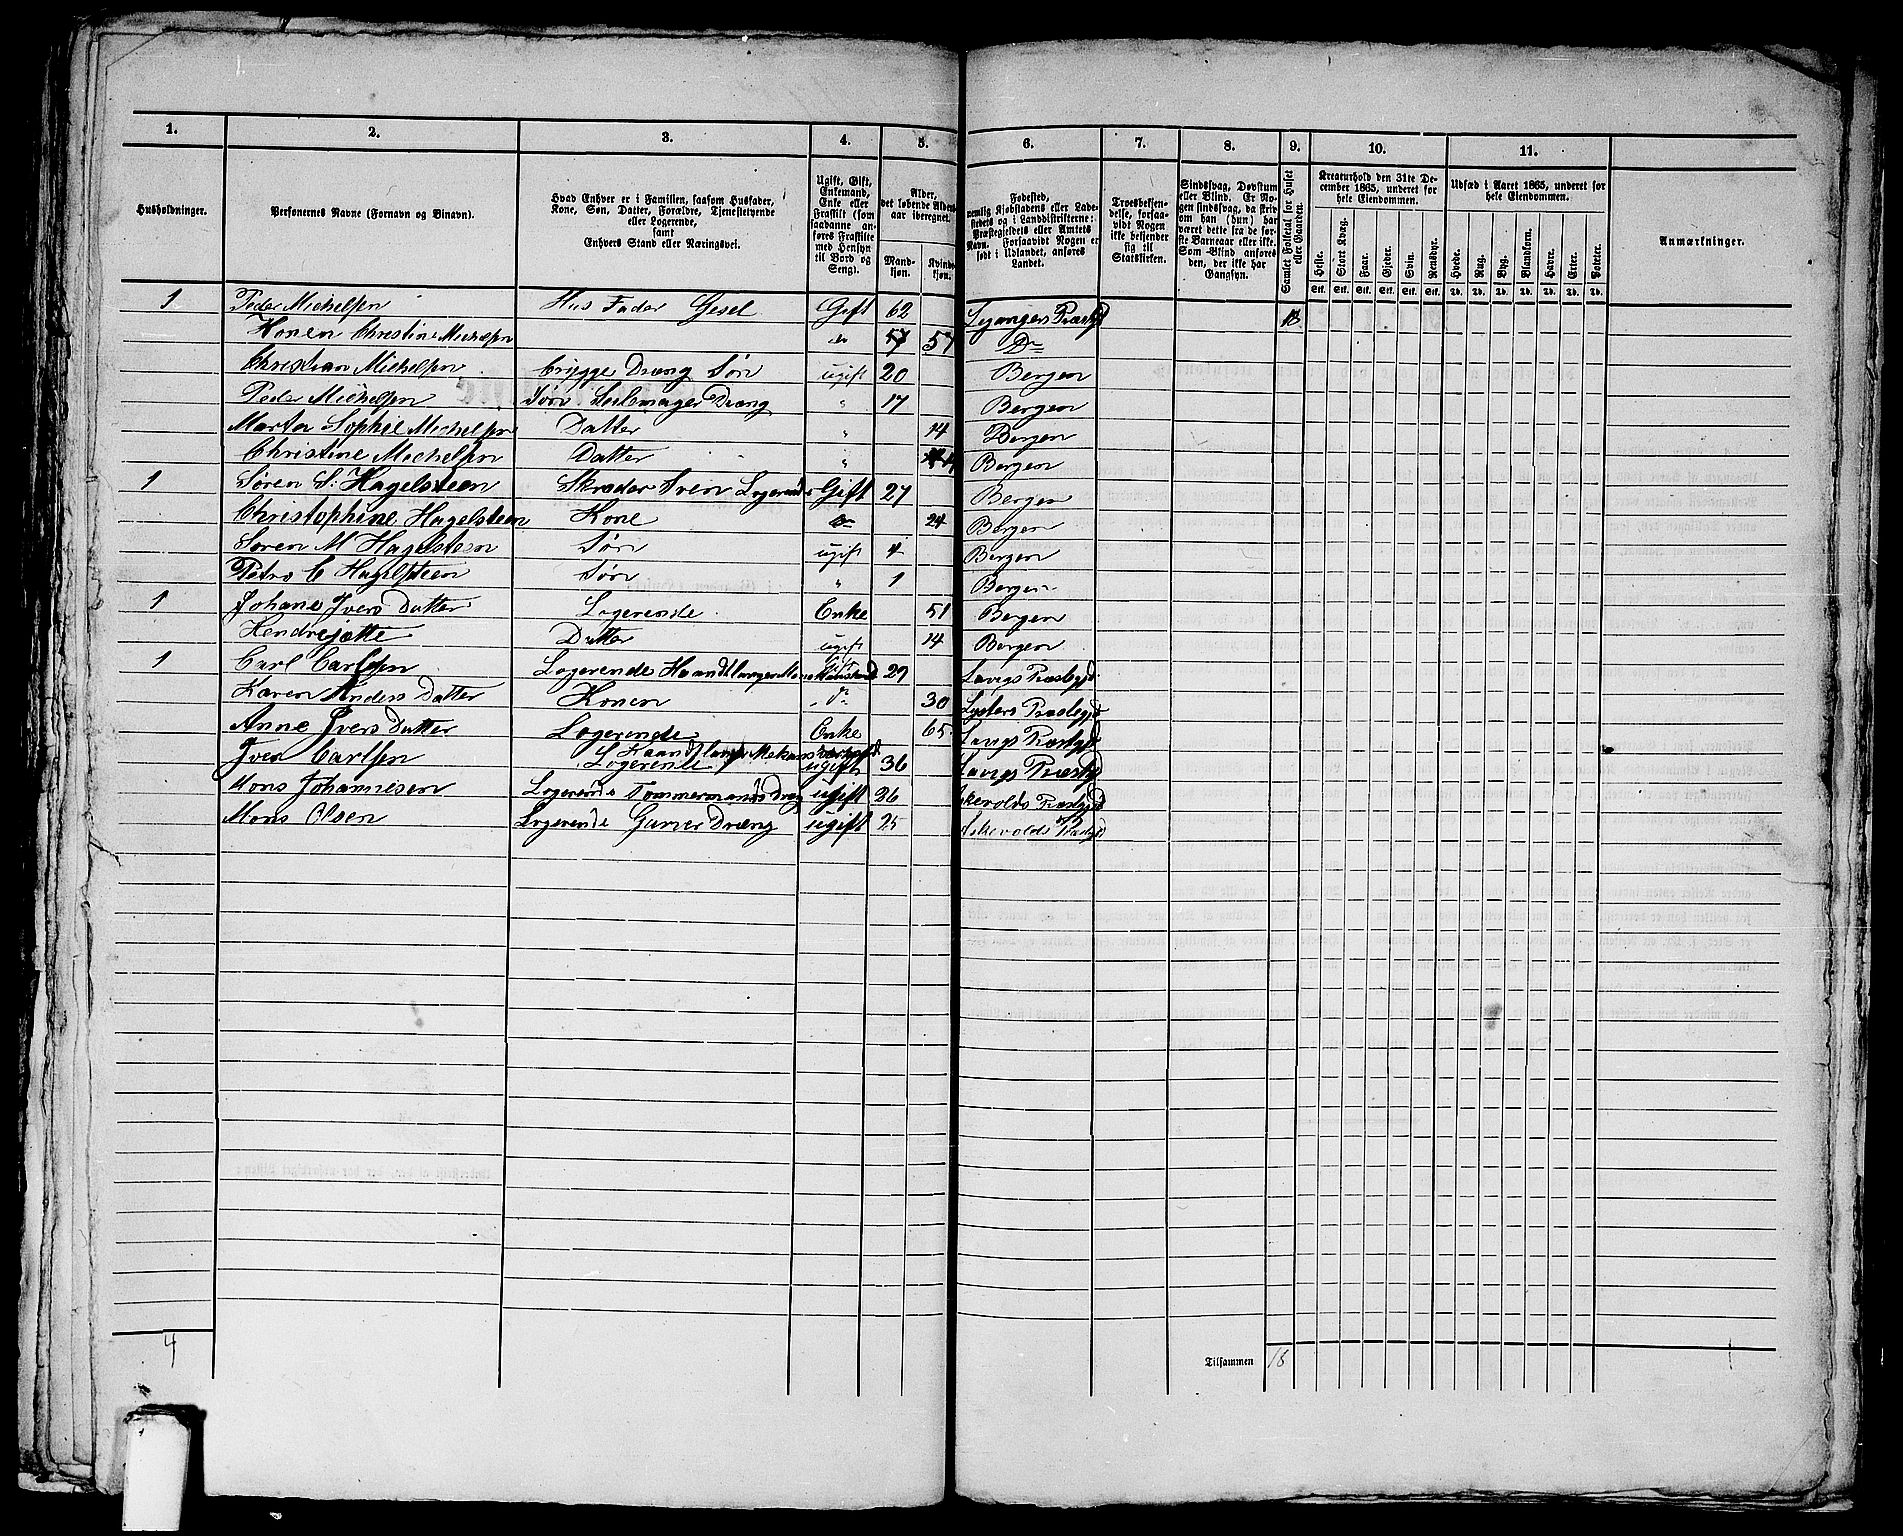 1. 2. 3. 4. 5. 6. 7. 8. 9. 10. 11.
Husholdninger.
Personernes Navne (Fornavn og Binavn).
Hvad Enhver er i Familien, saasom Husfader, Kone, Søn, Datter, Forældre, Tjenestetyende eller Logerende, samt Enhvers Stand eller Næringsvei.
Ugift, Gift, Enkemand, Enke eller Fraskilt (som saadanne anføres Fraskilte med Hensyn til Bord og Seng).
Alder, det løbende Alders-aar iberegnet.
Mandkjøn. Kvindekjøn.
Fødested, nemlig Kjøbstadens eller Ladestedets og i Landdistrikterne: Præstegjeldets eller Amtets Navn. Forsaavidt Nogen er født i Udlandet, anføres Landet.
Troesbekjendelse, forsaavidt Nogen ikke bekjender sig til Statskirken.
Sindssvag, Døvstum eller Blind. Er Nogen sindssvag, da skriv om han (hun) har været dette fra de første Barneaar eller ikke. Som Blind anføres den, der ikke har Gangsyn.
Samlet Folketal for Huset eller Gaarden.
Kreaturhold den 31te December 1865, underet for hele Eiendommen.
Heste. Stort Kvæg. Faar. Gjeder. Svin. Rensdyr.
Stk. Stk. Stk. Stk. Stk. Stk.
Udsæd i Aaret 1865, underet for hele Eiendommen.
Hvede. Rug. Byg. Blandkorn. Havre. Erter. Poteter.
Td. Td. Td. Td. Td. Td. Td.
Anmærkninger.
1 Peder Michelsen Hus Fader Gesel Gift 62 Lejangers Præstgd 18
Konen Christine Michelsen do 57 Do
Christian Michelsen Brygge Dræng Søn ugift 20 Bergen
Peder Michelsen Søn Seilemager Dræng " 17 Bergen
Marta Sophie Michelsen Datter " 14 Bergen
Christine Michelsen Datter " Bergen
1 Søren S. Hagelsteen Skræder Sven Logerende Gift 27 Bergen
Christophine Hagelsteen Kone do 24 Bergen
Søren M Hagelsteen Søn ugift 4 Bergen
Petro C Hagelsteen Søn " 1 Bergen
1 Johane Ivers Datter Logerende Enke 51 Bergen
Hendrejette Datter ugift 14 Bergen
1 Carl Carlsen Logerende Haandtlanger Gift 29 Lavigs Præstegd
Karen Anders Datter Konen do 30 Lysters Præstegd
Anne Ivers Datter Logerende Enke 65 Lavigs Præstgd
Iver Carlsen Logerende Haandtlanger ugift 36 Lavigs Præstgd
Mons Johannesen Logerende Tømmermands Dræg ugift 26 Askevolds Præstgd
Mons Olsen Logerende Garver Dræng ugift 25 Askevolds Præstgd
4 Tilsammen 18